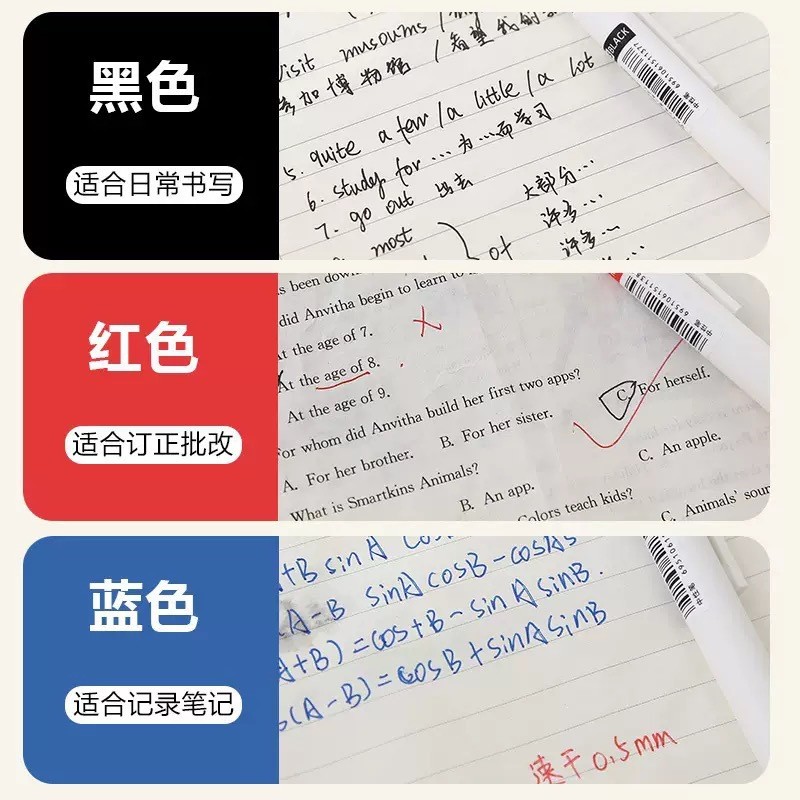 黑色
适合日常书写
visit musoums /
参加博物馆 / 希望我们
5. quite a few / a little / a lot
6. study for ... 为...而学习
7. go out 出去
most
of
大部分...
许多...
许多...
BLACK
6951061511377
中性笔
红色
适合订正批改
s been down
did Anvitha begin to learn to
At the age of 7.
At the age of 8.
At the age of 9.
For whom did Anvitha build her first two apps?
A. For her brother. B. For her sister. C. For herself.
What is Smartkins Animals?
B. An app. C. An apple.
Colors teach kids?
C. Animals' soun
695106151138
中性笔
蓝色
适合记录笔记
+B sin A cos
A-B sinA cosB-cosAs
A+B)=cos+B-sinAsinB.
s(A-B)=cosB+sinAsinB
速干0.5mm
695106
中性笔